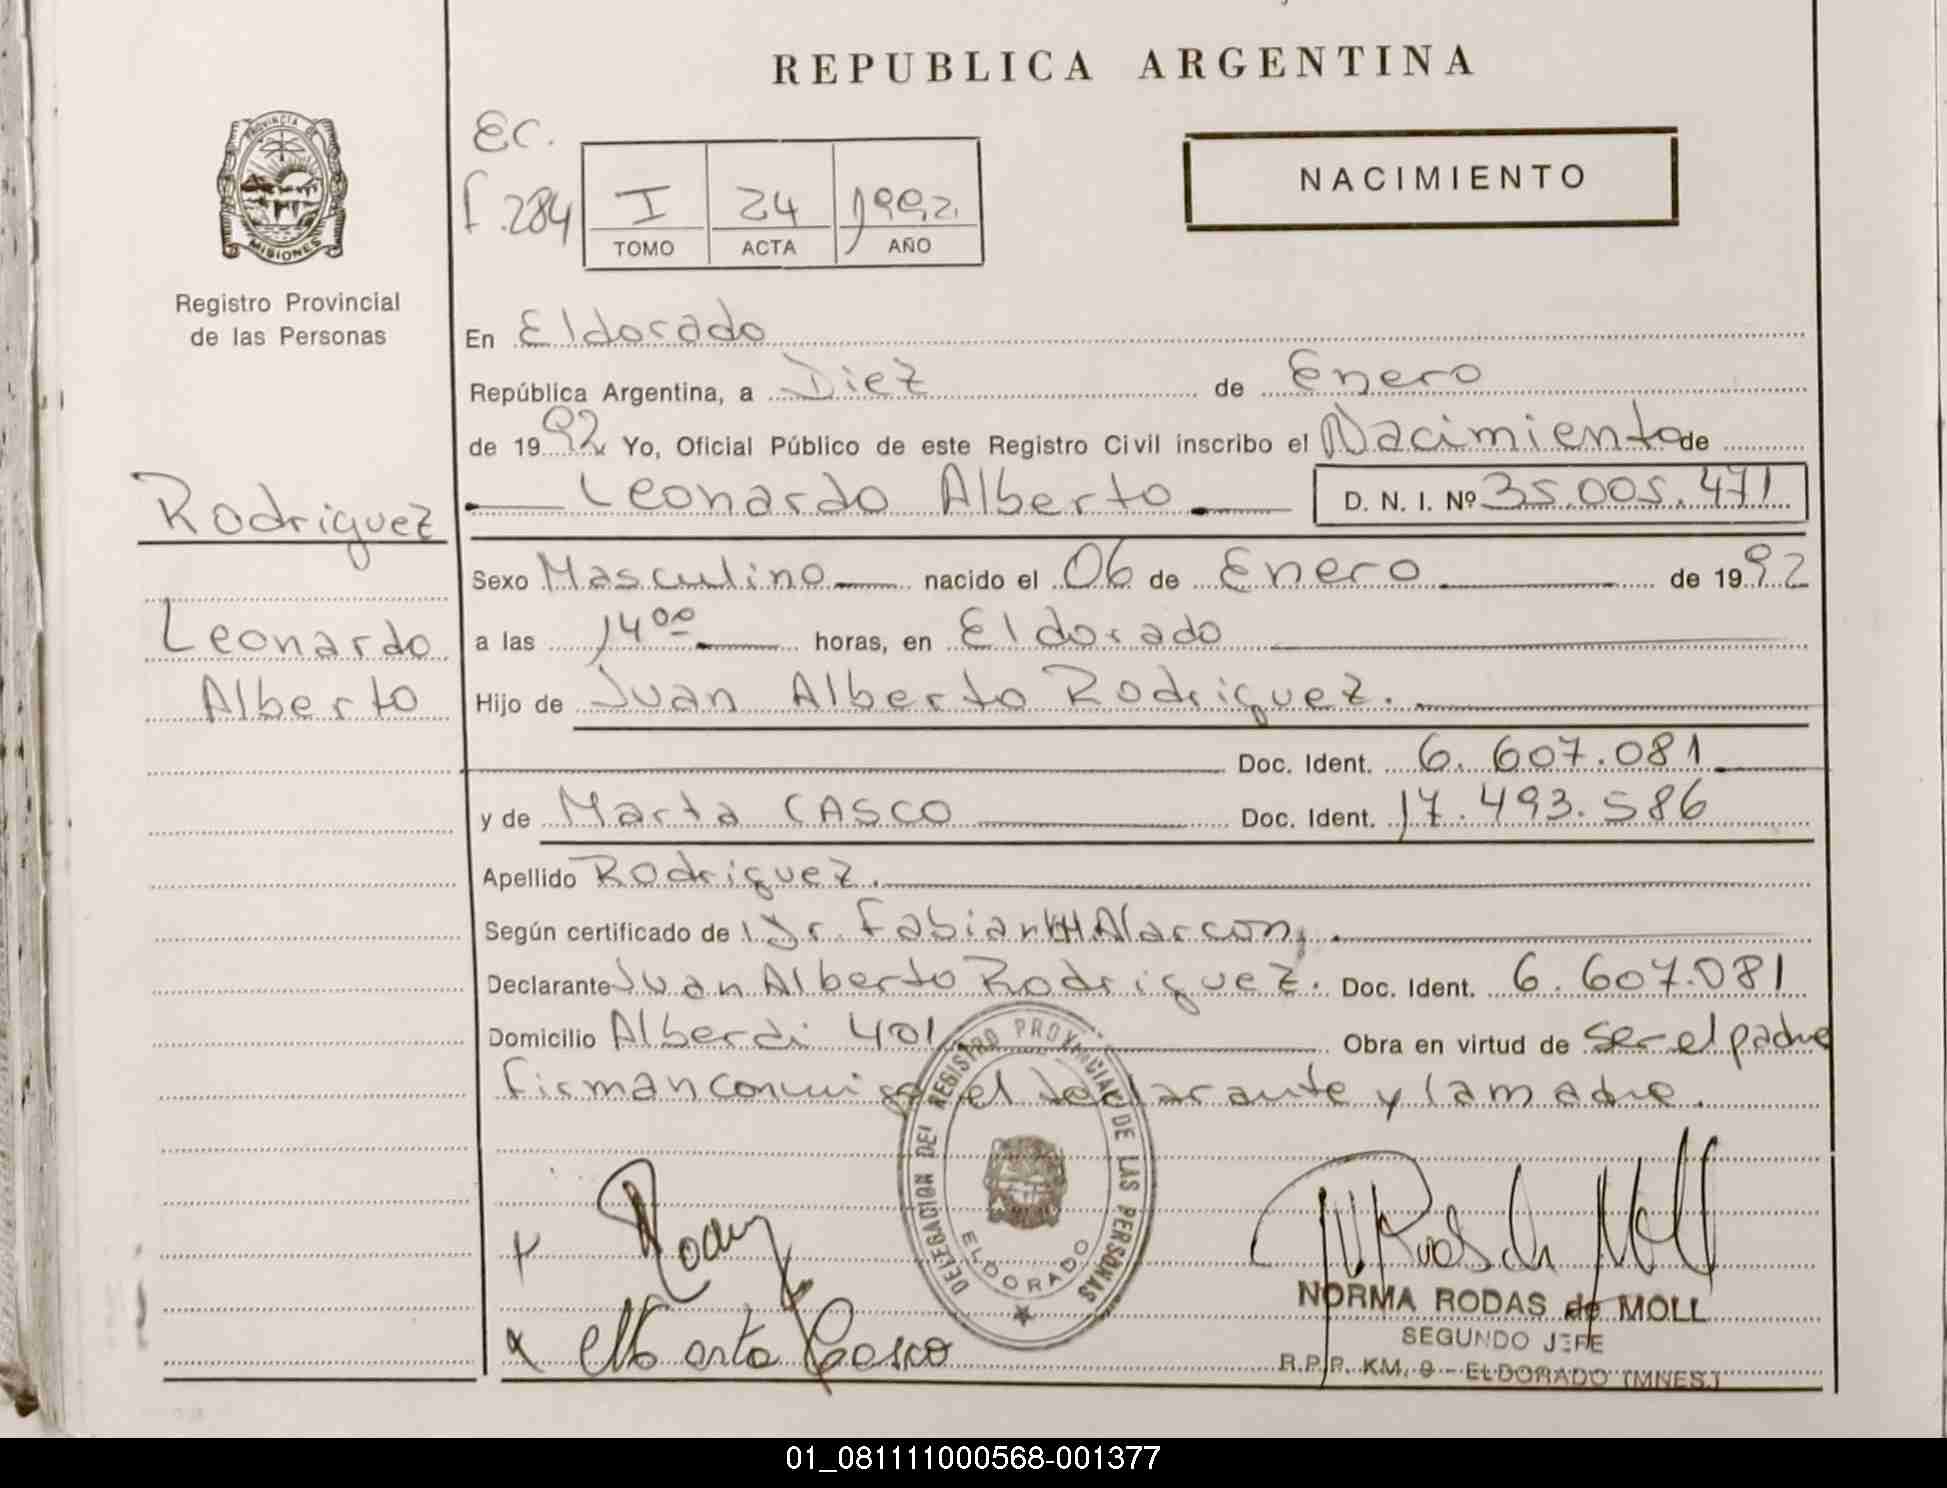 REPUBLICA ARGENTINA
PROVINCIA DE
MISIONES
Registro Provincial
de las Personas
EC.
f. 284
I 24 1992
TOMO ACTA AÑO
NACIMIENTO
En Eldorado
República Argentina, a Diez de Enero
de 1992 Yo, Oficial Público de este Registro Civil inscribo el Nacimiento de
Leonardo Alberto D. N. I. Nº 35.005.471
Rodriguez
Leonardo
Alberto
Sexo Masculino nacido el 06 de Enero de 1992
a las 14 00 horas, en Eldorado
Hijo de Juan Alberto Rodriguez.
Doc. Ident. 6. 607.081
y de Marta CASCO Doc. Ident. 17.493.586
Apellido Rodriguez.
Según certificado de Dr. Fabian H. Alarcon,
Declarante Juan Alberto Rodriguez. Doc. Ident. 6. 607.081
Domicilio Alberdi 401 Obra en virtud de ser el padre
firman conmigo el declarante y la madre.
DELEGACION DEL REGISTRO PROVINCIAL DE LAS PERSONAS
ELDORADO
Marta Casco
NORMA RODAS de MOLL
SEGUNDO JEFE
R.P.P. KM. 9 - ELDORADO (MNES.)
01_081111000568-001377